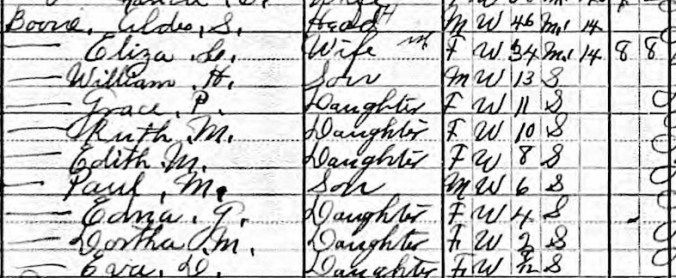 Boone, Aldes, S. Head M W 46 M1 14
— Eliza, L. Wife F W 34 M1 14 8 8
— William, H. Son M W 13 S
— Grace, P. Daughter F W 11 S
— Ruth, M. Daughter F W 10 S
— Edith, M. Daughter F W 8 S
— Paul, M. Son M W 6 S
— Edna, P. Daughter F W 4 S
— Dortha, M. Daughter F W 2 S
— Eva, D. Daughter F W S